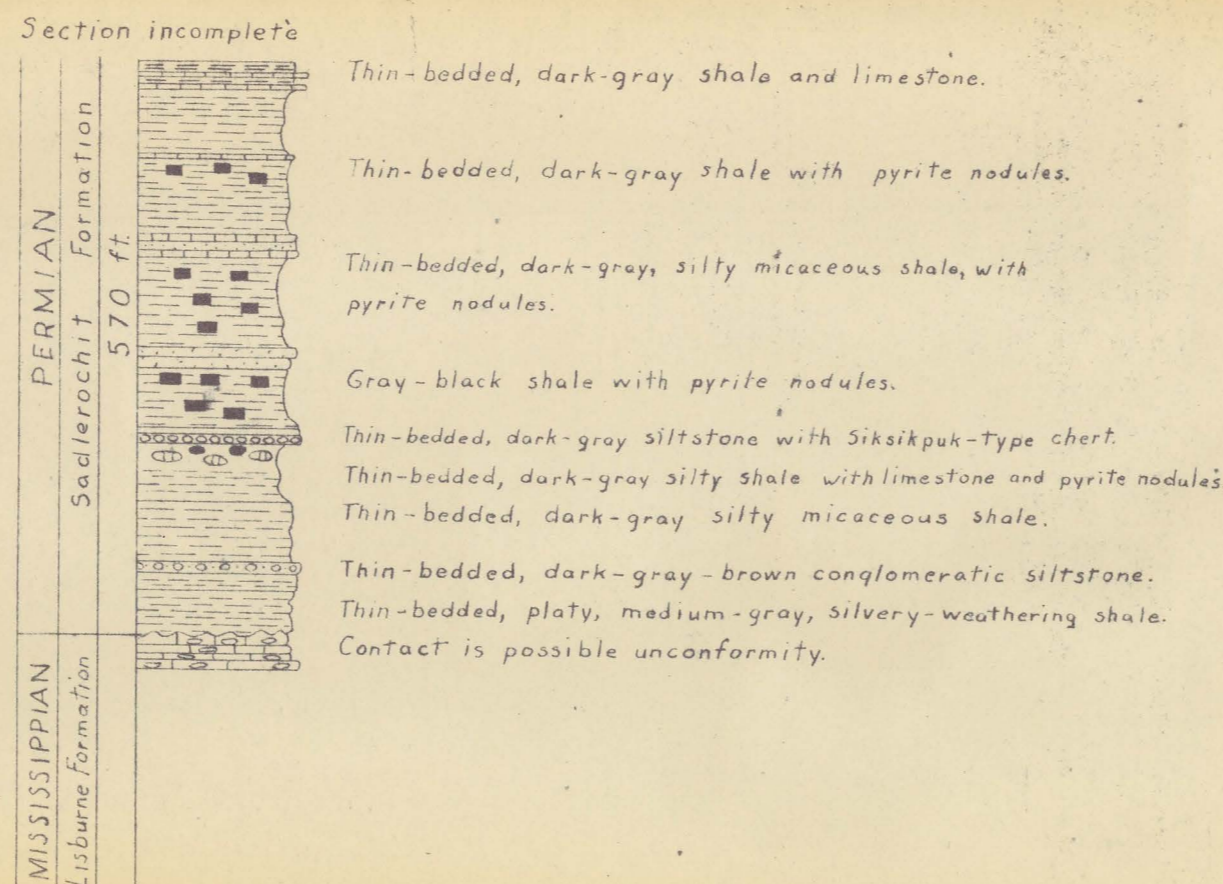 Section incomplete
PERMIAN
Sadlerochit Formation
570 ft.
MISSISSIPPIAN
Lisburne Formation
Thin-bedded, dark-gray shale and limestone.
Thin-bedded, dark-gray shale with pyrite nodules.
Thin-bedded, dark-gray, silty micaceous shale, with
pyrite nodules.
Gray-black shale with pyrite nodules.
Thin-bedded, dark-gray siltstone with Siksikpuk-type chert.
Thin-bedded, dark-gray silty shale with limestone and pyrite nodules
Thin-bedded, dark-gray silty micaceous shale.
Thin-bedded, dark-gray-brown conglomeratic siltstone.
Thin-bedded, platy, medium-gray, silvery-weathering shale.
Contact is possible unconformity.